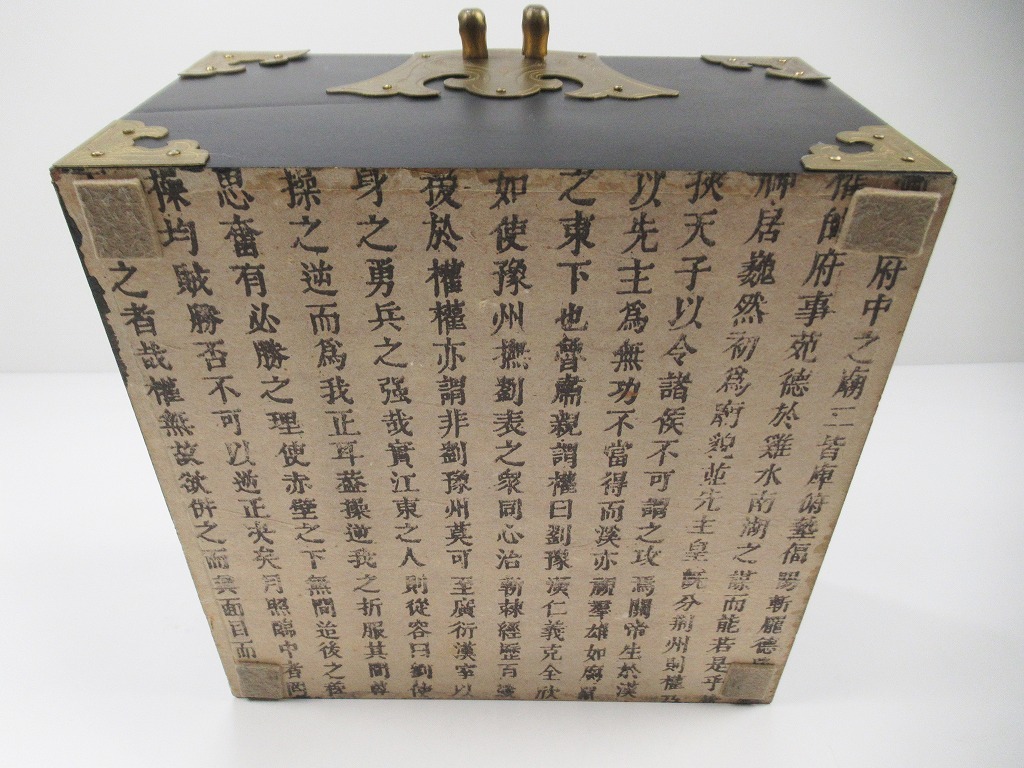 府中之廟三皆庫俯
府事苑德於雞水南湖之謀而能若是乎
居巍然初爲貌並先主皇既分荆州則權
挾天子以令諸侯不可謂之攻爲關帝生於漢
以先主爲無功不當得而溪亦羣雄如腐
之東下也肅親謂權曰劉豫漢仁義克全欣
如使豫州撫劉表之衆同心治斬棘經歷百
後於權權亦謂非劉豫州莫可至廣衍漢室以
身之勇兵之强哉實江東之人則從容曰劉使
操之逆而爲我正耳葢操逆我之折服其間
思奮有必勝之理使赤壁之下無間迨後之
操均敗勝否不可以逆正夾矣月照臨中者四
之者哉權無故欲併之而矣面目而